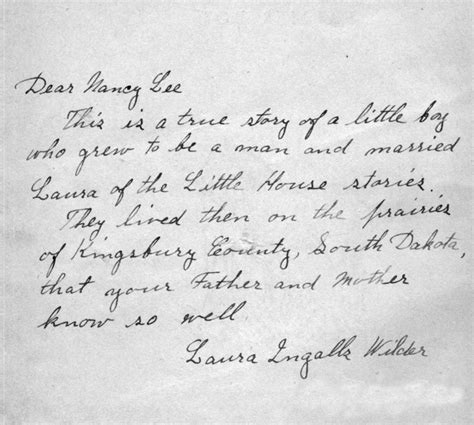 Dear Nancy Lee
This is a true story of a little boy
who grew to be a man and married
Laura of the Little House stories.
They lived then on the prairies
of Kingsbury County, South Dakota,
that your Father and Mother
know so well
Laura Ingalls Wilder